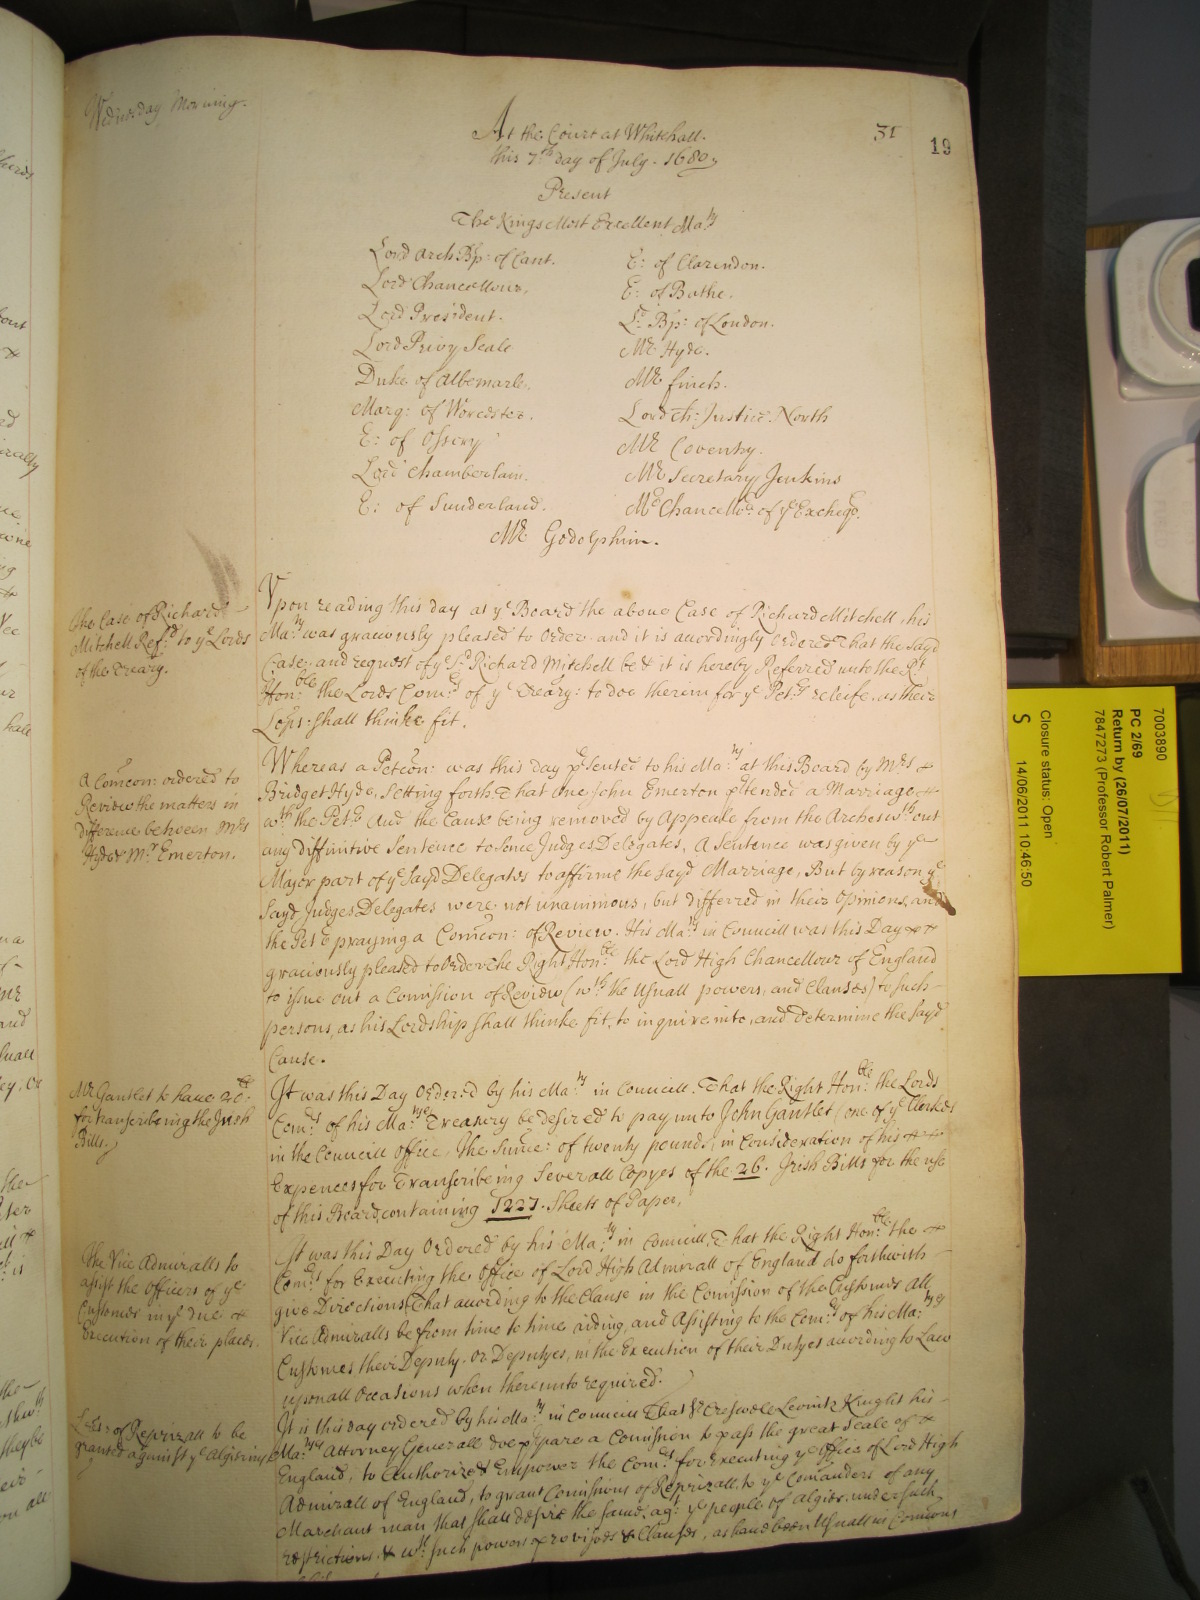 Wednesday Morning.
At the Court at Whitehall.
this 7th day of July. 1680,
31
19
Present
The Kings Most Excellent Maty
Lord Arch Bp: of Cant.
Lord Chancellour.
Lord President.
Lord Privy Seale
Duke of Albemarle.
Marq: of Worcester.
E: of Ossory
Lord Chamberlain.
E: of Sunderland.
E: of Clarendon.
E: of Bathe.
Ld Bp: of London.
Mr Hyde.
Mr finch.
Lord Ch: Justice North
Mr Coventry.
Mr Secretary Jenkins
Mr Chancellor of ye Excheqr.
Mr Godolphin.
the Case of Richard
Mitchell Refd to ye Lords
of the Treary.
Vpon reading this day at ye Board the above Case of Richard Mitchell, his
Maty was graciously pleased to Order and it is accordingly Ordered That the sayd
Case, and request of ye Sd Richard Mitchell be & it is hereby Referred unto the Rt
Honble the Lords Comrs of ye Treary: to doe therein for ye Petrs releife. as their
Lops: shall thinke fit.
A Comcon: ordered to
Review the matters in
difference between Mrs
Hyde & Mr Emerton.
Whereas a Petcon: was this day psented to his Maty at this Board by Mrs &
Bridget Hyde, Setting forth. That one John Emerton ptended a Marriage
wth the Petr And the Cause being removed by Appeale from the Arches wth out
any diffinitive Sentence to some Judges Delegates, A Sentence was given by ye
Major part of ye Sayd Delegates to affirme the sayd Marriage, But by reason ye
Sayd Judges Delegates were not unanimous, but differred in their Opinions, and
the Petr praying a Comcon: of Review. His Maty in Councill was this Day
graciously pleased to Order the Right Honble the Lord High Chancellour of England
to issue out a Comission of Review (wth the Usuall powers, and Clauses) to such
persons, as his Lordship shall thinke fit, to inquire into, and determine the sayd
Cause.
Mr Gantlet to have 20li:
for transcribeing the Irish
Bills.
It was this Day Ordered by his Maty in Councill. That the Right Honble the Lords
Comrs of his Matyes Treasury be desired to pay unto John Gantlet, one of ye Clerkes
in the Councill Office, the Sume: of twenty pounds, in Consideration of his
Expences for Transcribeing Severall Copyes of the 26. Irish Bills for the use
of this Board, containing 1227. Sheets of Paper,
the Vice Admiralls to
assist the Officers of ye
Customes in ye due &
Execution of their places.
It was this Day Ordered by his Maty in Councill. That the Right Honble the &
Comrs for Executing the Office of Lord High Admirall of England do forthwith
give Directions, That according to the Clause in the Comission of the Customes All
Vice Admiralls be from time to time aiding, and Assisting to the Comrs of his Matyes
Customes their Deputy. Or Deputyes, in the Execution of their Dutyes according to Law
upon all Occasions when thereunto required.
Lres: of Reprizall to be
granted against ye Algirines
It is this day ordered by his Maty in Councill That Sr Creswell Levintz Knight his
Matyes Attorney Generall doe ppare a Comission to pass the great Seale of &
England, to Authorize & Empower the Comrs for Executing ye Office of Lord High
Admirall of England, to grant Comissions of Reprizall, to ye Comanders of any
Marchant man that shall desire the same, agt ye people of Algier. under such
restrictions & wth such powers provisoes & Clauses, as have been Usuall in Comcons
7003890
PC 2/69
Return by (26/07/2011)
7847273 (Professor Robert Palmer)
Closure status: Open
S 14/06/2011 10:46:50